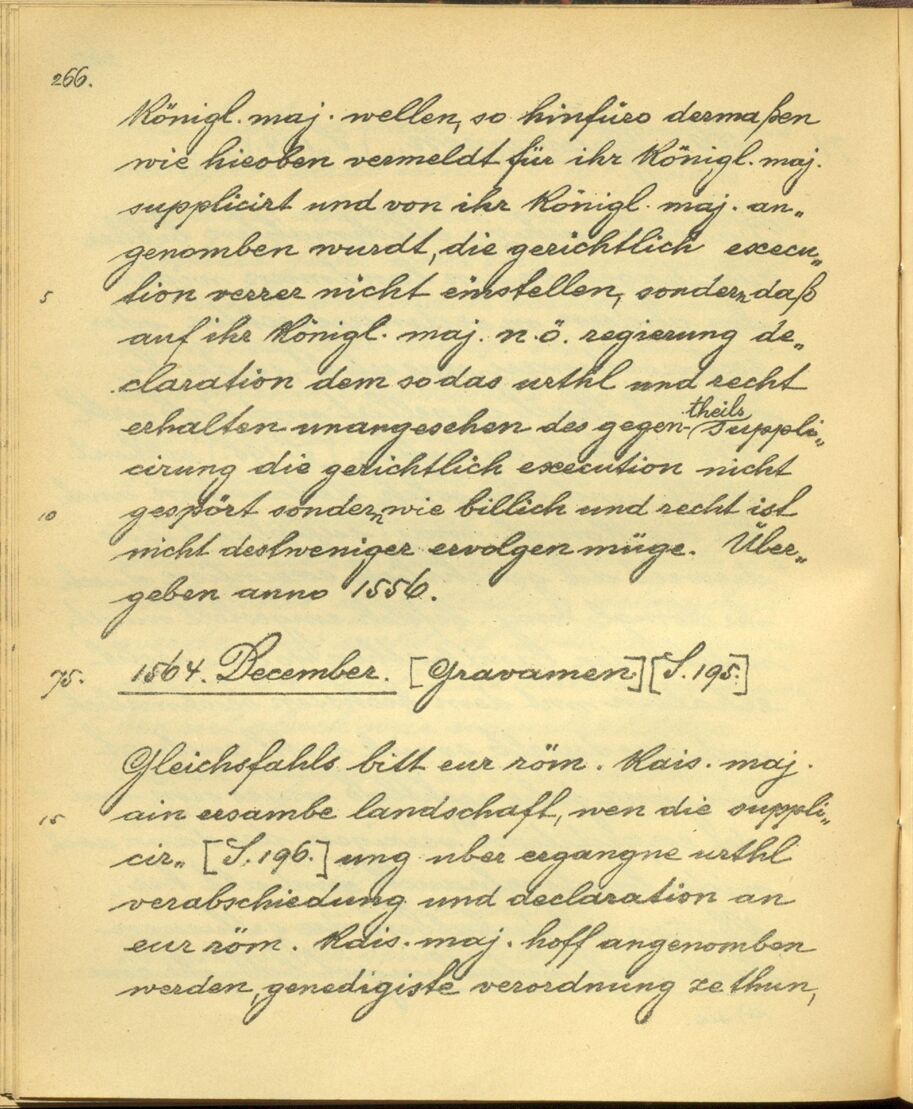 266.
Königl. maj. wellen, so hinfüro dermaßen
wie hieoben vermeldt für ihr Königl. maj.
supplicirt und von ihr Königl. maj. an„
genomben wurdt, die gerichtlich execu„
5 tion verrer nicht einstellen, sondern daß
auf ihr Königl. maj. n.ö. regierung de„
claration dem so das urthl und recht
erhalten unangesehen des gegen-theils suppli„
cirung die gerichtlich execution nicht
10 gespört sondern wie billich und recht ist
nicht destweniger ervolgen müge. Über„
geben anno 1556.
75. 1564. December. [Gravamen] [S. 195.]
Gleichsfahls bitt eur röm. Kais. maj.
15 ain ersambe landschaft, wen die suppli„
cir„ [S. 196.] ung uber ergangne urthl
verabschiedung und declaration an
eur röm. Kais. maj. hoff angenomben
werden, genedigiste verordnung ze thun,